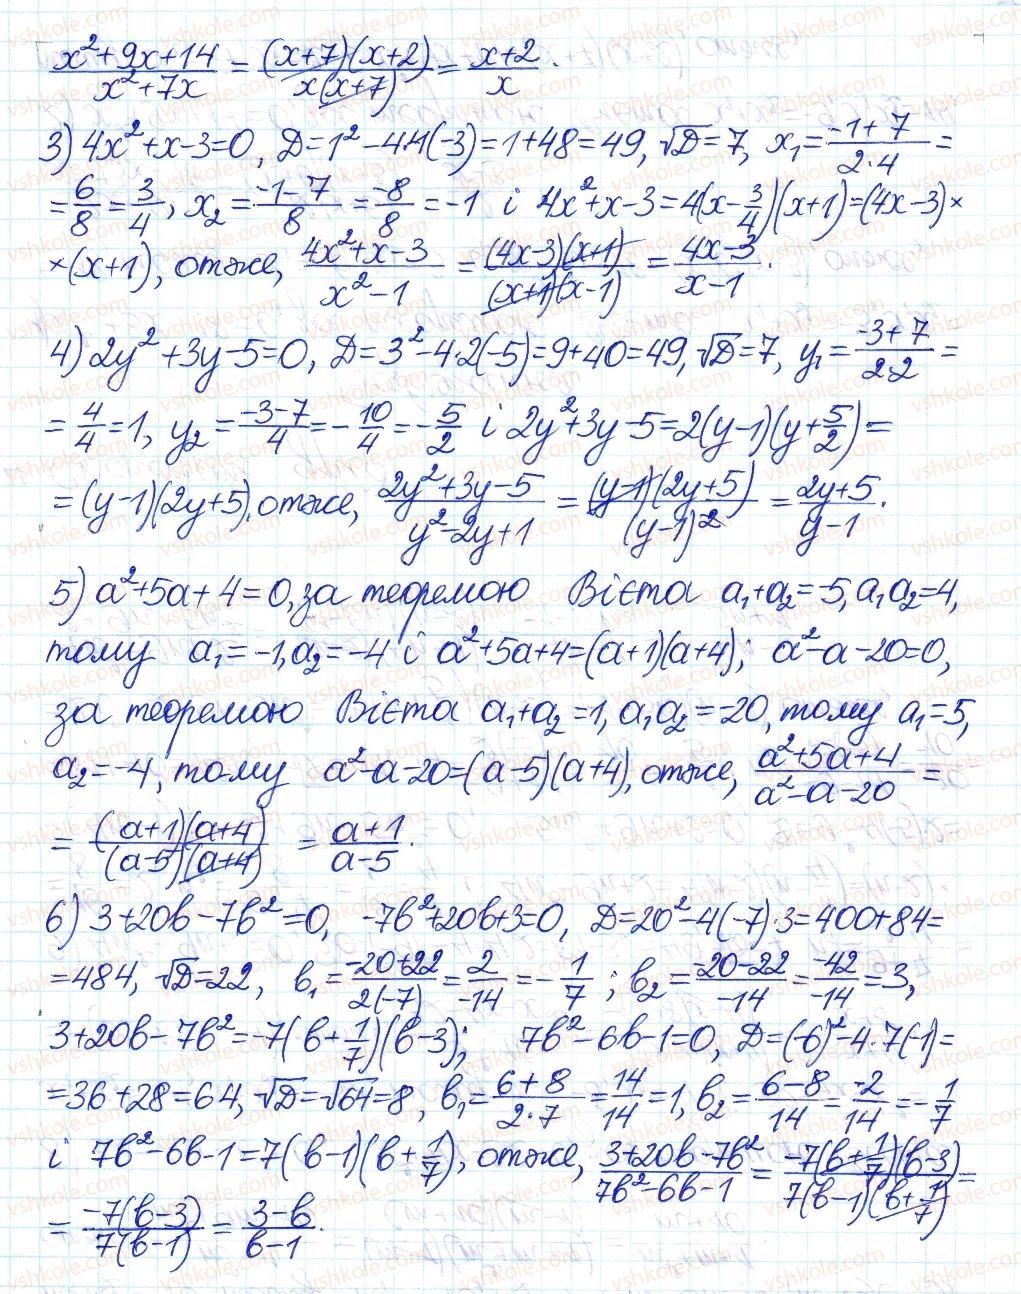 (x²+9x+14)/(x²+7x) = ((x+7)(x+2))/(x(x+7)) = (x+2)/x.
3) 4x²+x-3=0, D=1²-4·4·(-3)=1+48=49, √D=7, x₁=(-1+7)/(2·4)=
=6/8=3/4, x₂=(-1-7)/8=-8/8=-1 і 4x²+x-3=4(x-3/4)(x+1)=(4x-3)×
×(x+1), отже, (4x²+x-3)/(x²-1) = ((4x-3)(x+1))/((x+1)(x-1)) = (4x-3)/(x-1).
4) 2y²+3y-5=0, D=3²-4·2(-5)=9+40=49, √D=7, y₁=(-3+7)/(2·2)=
=4/4=1, y₂=(-3-7)/4=-10/4=-5/2 і 2y²+3y-5=2(y-1)(y+5/2)=
=(y-1)(2y+5), отже, (2y²+3y-5)/(y²-2y+1) = ((y-1)(2y+5))/(y-1)² = (2y+5)/(y-1).
5) a²+5a+4=0, за теоремою Вієта a₁+a₂=-5, a₁a₂=4,
тому a₁=-1, a₂=-4 і a²+5a+4=(a+1)(a+4); a²-a-20=0,
за теоремою Вієта a₁+a₂=1, a₁a₂=-20, тому a₁=5,
a₂=-4, тому a²-a-20=(a-5)(a+4), отже, (a²+5a+4)/(a²-a-20)=
=((a+1)(a+4))/((a-5)(a+4)) = (a+1)/(a-5).
6) 3+20b-7b²=0, -7b²+20b+3=0, D=20²-4(-7)·3=400+84=
=484, √D=22, b₁=(-20+22)/(2(-7))=2/-14=-1/7; b₂=(-20-22)/-14=-42/-14=3,
3+20b-7b²=-7(b+1/7)(b-3); 7b²-6b-1=0, D=(-6)²-4·7(-1)=
=36+28=64, √D=√64=8, b₁=(6+8)/(2·7)=14/14=1, b₂=(6-8)/14=-2/14=-1/7
і 7b²-6b-1=7(b-1)(b+1/7), отже, (3+20b-7b²)/(7b²-6b-1) = (-7(b+1/7)(b-3))/(7(b-1)(b+1/7))=
=(-7(b-3))/(7(b-1)) = (3-b)/(b-1).